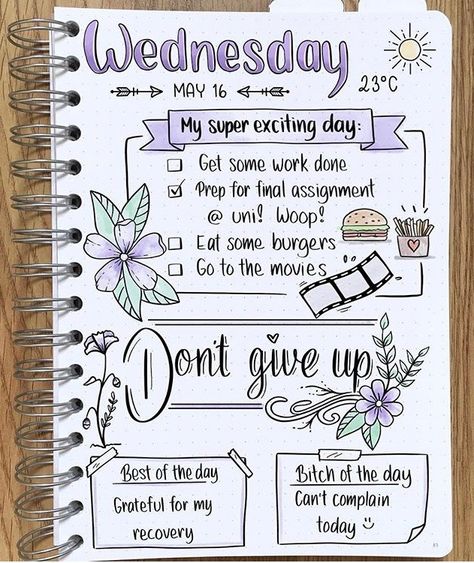 Wednesday
MAY 16
23°C
My super exciting day:
Get some work done
Prep for final assignment
@ uni! Woop!
Eat some burgers
Go to the movies
Don't give up
Best of the day
Grateful for my
recovery
Bitch of the day
Can't complain
today